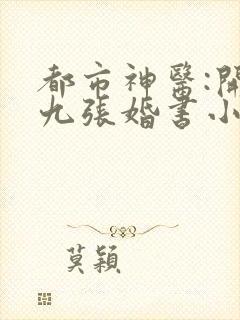 都市神醫:開
九張婚書小
莫穎